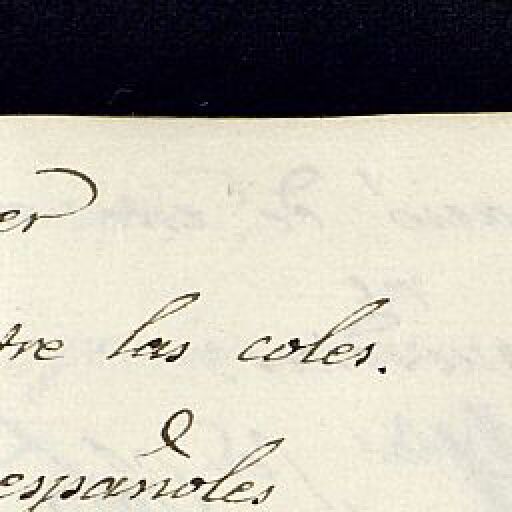 er
tre las coles.
españoles